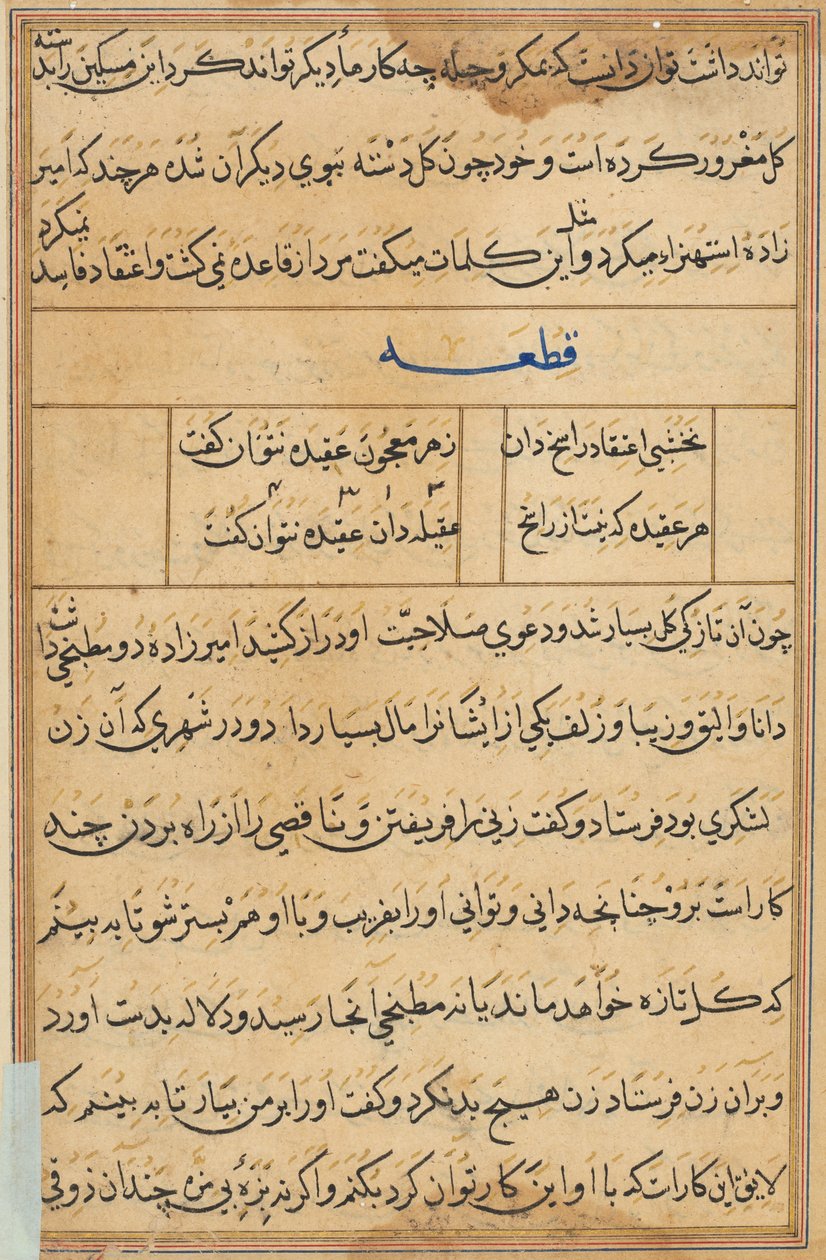 تواند داشت توان دانست که بمکر و حیله چه کارهاء دیکر تواند کرد این مسکین را بدسته
کل مغرور کرده است و خود چون کل دسته ببوي دیکران شده هرچند که امیر
زاده استهزاء میکرد و این مثل کلمات میکفت مرد از قاعده نمي کشت و اعتقاد فاسد نمیکرد
قطعه
نخشبي اعتقاد راسخ دان زهر معجون عقیده نتوان کفت
هر عقیده که نیست از راسخ عقیله دان عقیده نتوان کفت
چون آن تازکي کل بسیار شد و دعوي صلاحیت او دراز کشید امیرزاده دو مطبخي داشت
دانا و الیق و زیبا و زلف یکي از ایشانرا مال بسیار دا دو در شهري که آن زن
لشکري بود فرستاد و کفت زني را فریفتن و ناقصي را از راه بردن چند
کار است برو چنانچه داني و تواني او را بفریب و با او هم بستر شو تا به بینم
که کل تازه خواهد ماند یا نه مطبخي آنجا رسید و دلاله بدست اورد
و بر آن زن فرستاد زن هیچ بد نکرد و کفت او را بر من بیار تا به بینم که
لایق این کار است که با او این کار توان کرد بکنم و اکر نه بزهٔ بي مزه چندان ذوقي